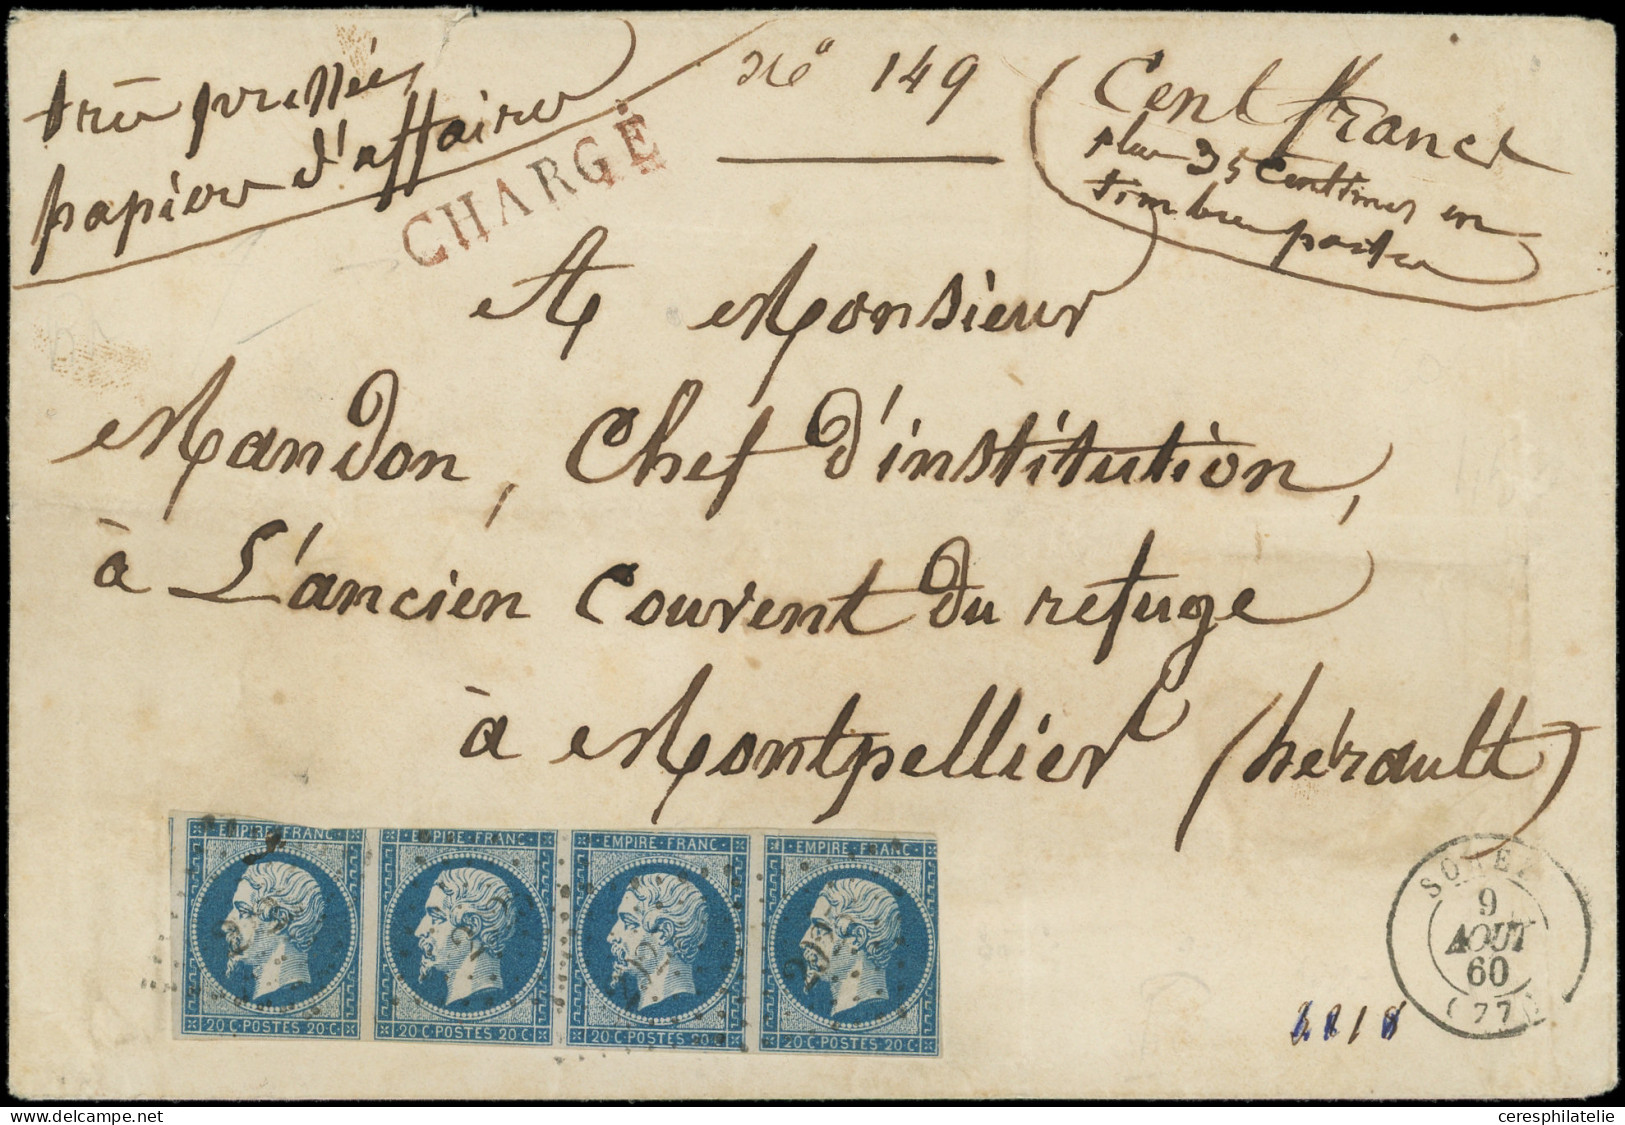 très pressées
papiers d'affaires
CHARGÉ
No 149
Cent francs
plus 35 Centimes en
timbres poste
A Monsieur
Mandon, Chef d'institution,
à L'ancien Couvent du refuge
à Montpellier (hérault)
EMPIRE FRANC
20 C POSTES 20 C
EMPIRE FRANC
20 C POSTES 20 C
EMPIRE FRANC
20 C POSTES 20 C
EMPIRE FRANC
20 C POSTES 20 C
9
AOUT
60
(77)
ceresphilatelie.com